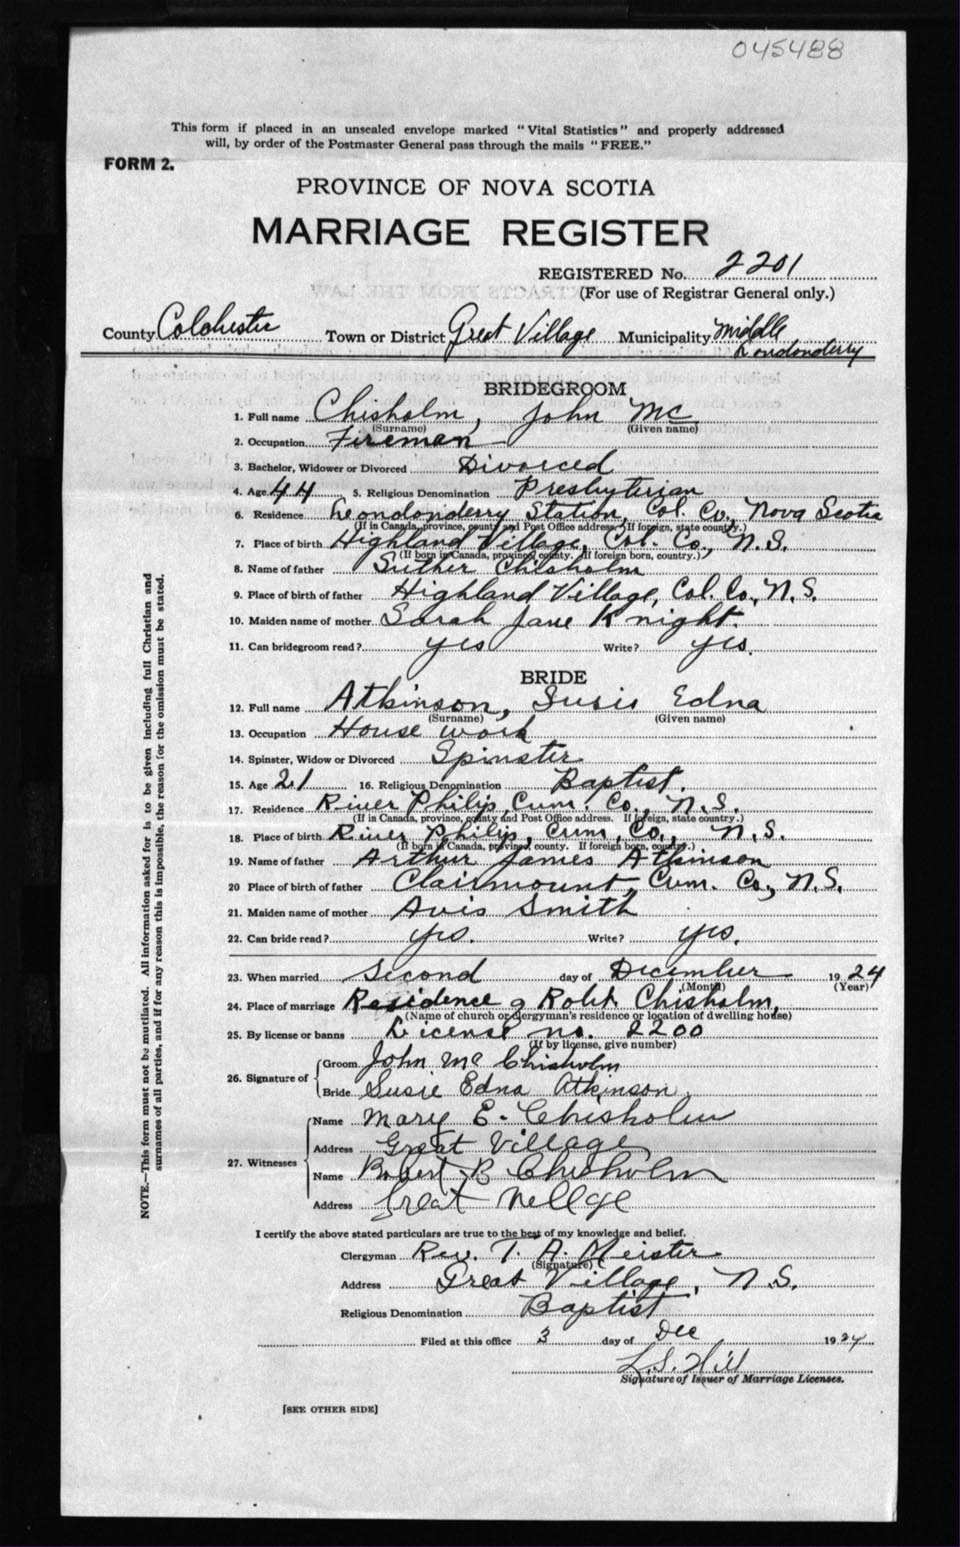 045488
This form if placed in an unsealed envelope marked "Vital Statistics" and properly addressed
will, by order of the Postmaster General pass through the mails "FREE."
FORM 2.
PROVINCE OF NOVA SCOTIA
MARRIAGE REGISTER
REGISTERED No. 2201
(For use of Registrar General only.)
County Colchester Town or District Great Village Municipality Middle Londonderry
BRIDEGROOM
1. Full name Chisholm, John Mc
(Surname) (Given name)
2. Occupation Fireman
3. Bachelor, Widower or Divorced Divorced
4. Age 44 5. Religious Denomination Presbyterian
6. Residence Londonderry Station, Col. Co, Nova Scotia
(If in Canada, province, county and Post Office address. If foreign, state country.)
7. Place of birth Highland Village, Col. Co., N.S.
(If born in Canada, province, county. If foreign born, country.)
8. Name of father Suther Chisholm
9. Place of birth of father Highland Village, Col. Co., N.S.
10. Maiden name of mother Sarah Jane Knight.
11. Can bridegroom read? yes Write? yes.
BRIDE
12. Full name Atkinson, Susie Edna
(Surname) (Given name)
13. Occupation House work
14. Spinster, Widow or Divorced Spinster
15. Age 21 16. Religious Denomination Baptist.
17. Residence River Philip, Cum. Co., N.S.
(If in Canada, province, county and Post Office address. If foreign, state country.)
18. Place of birth River Philip, Cum, Co., N.S.
(If born in Canada, province, county. If foreign born, country.)
19. Name of father Arthur James Atkinson
20 Place of birth of father Clairmount, Cum. Co., N.S.
21. Maiden name of mother Avis Smith
22. Can bride read? yes. Write? yes.
23. When married Second day of December 1924
(Month) (Year)
24. Place of marriage Residence of Robt. Chisholm,
(Name of church or clergyman's residence or location of dwelling house)
25. By license or banns License no. 2200
(If by license, give number)
26. Signature of Groom John Mc Chisholm
Bride Susie Edna Atkinson
27. Witnesses Name Mary E. Chisholm
Address Great Village
Name Robert B Chisholm
Address Great
I certify the above stated particulars are true to the best of my knowledge and belief.
Clergyman Rev. T. A. Meister
(Signature)
Address Great Village, N.S.
Religious Denomination Baptist
Filed at this office 3 day of Dec 1924
L.S. Hill
Signature of Issuer of Marriage Licenses.
[SEE OTHER SIDE]
NOTE.—This form must not be mutilated. All information asked for is to be given including full Christian and
surnames of all parties, and if for any reason this is impossible, the reason for the omission must be stated.